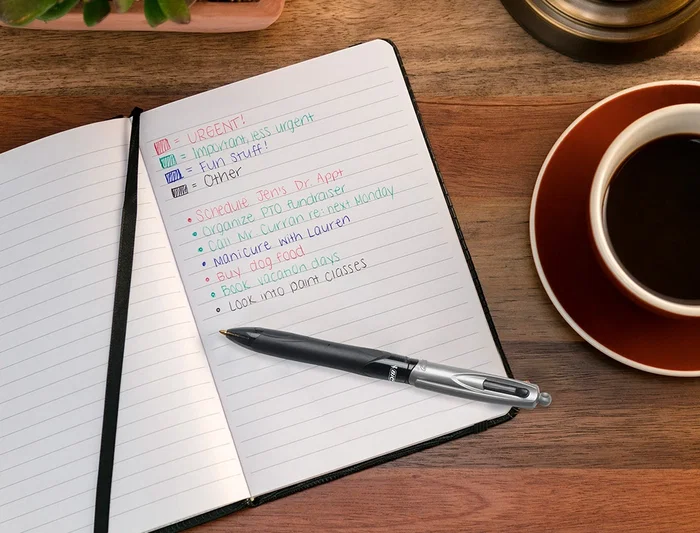 = URGENT!
= Important, less urgent
= Fun Stuff!
= Other
• Schedule Jen's Dr. Appt
• Organize PTO fundraiser
• Call Mr. Curran re: next Monday
• Manicure with Lauren
• Buy dog food
• Book vacation days
• Look into paint classes
BIC